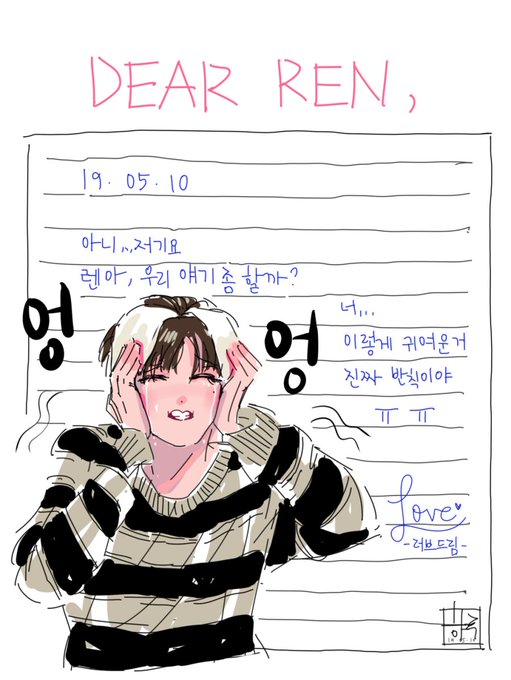 DEAR REN,
19. 05. 10
아니,,,저기요
렌아, 우리 얘기 좀 할까?
엉
엉
너,,,
이렇게 귀여운거
진짜 반칙이야
ㅠ ㅠ
Love
-러브드림-